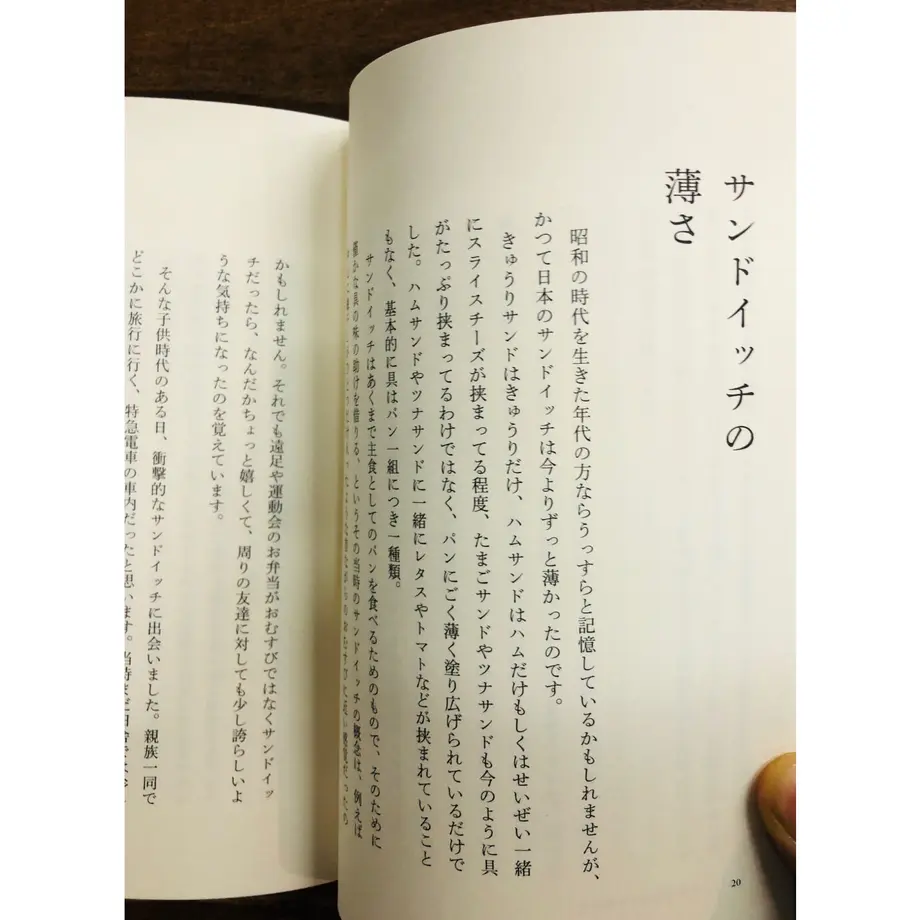 サンドイッチの
薄さ
昭和の時代を生きた年代の方ならうっすらと記憶しているかもしれませんが、
かつて日本のサンドイッチは今よりずっと薄かったのです。
きゅうりサンドはきゅうりだけ、ハムサンドはハムだけもしくはせいぜい一緒
にスライスチーズが挟まってる程度、たまごサンドやツナサンドも今のように具
がたっぷり挟まってるわけではなく、パンにごく薄く塗り広げられているだけで
した。ハムサンドやツナサンドに一緒にレタスやトマトなどが挟まれていること
もなく、基本的に具はパン一組につき一種類。
サンドイッチはあくまで主食としてのパンを食べるためのもので、そのために
僅かな具の味の助けを借りる、というその当時のサンドイッチの概念は、例えば
20
かもしれません。それでも遠足や運動会のお弁当がおむすびではなくサンドイッ
チだったら、なんだかちょっと嬉しくて、周りの友達に対しても少し誇らしいよ
うな気持ちになったのを覚えています。
そんな子供時代のある日、衝撃的なサンドイッチに出会いました。親族一同で
どこかに旅行に行く、特急電車の車内だったと思います。当時まだ